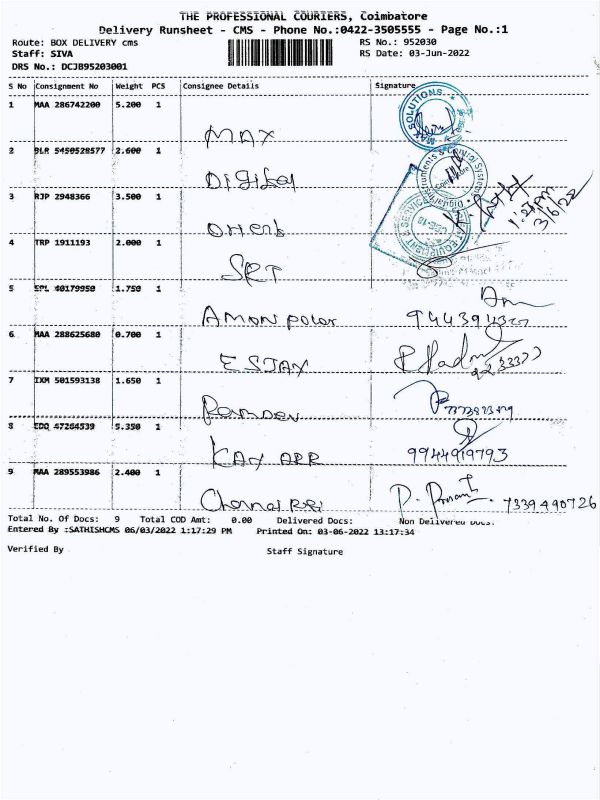 THE PROFESSIONAL COURIERS, Coimbatore
Delivery Runsheet - CMS - Phone No.:0422-3505555 - Page No.:1
Route: BOX DELIVERY cms RS No.: 952030
Staff: SIVA RS Date: 03-Jun-2022
DRS No.: DCJB95203001
S No Consignment No Weight PCS Consignee Details Signature
1 MAA 286742200 5.200 1
MAX
MAX SOLUTIONS
2 BLR 5450528577 2.600 1
Digital
3 RJP 2948366 3.500 1
1:27pm
3/6/22
4 TRP 1911193 2.000 1
SRT
5 EPL 40179950 1.750 1
Amon polar
6 MAA 288625680 0.700 1
ESJAY
7 IXM 501593138 1.650 1
Ramdev
8 EDQ 47264539 5.350 1
KAY ARR
9944919793
9 MAA 289553986 2.400 1
7339490726
Total No. Of Docs: 9 Total COD Amt: 0.00 Delivered Docs: Non Delivered Docs:
Entered By :SATHISHCMS 06/03/2022 1:17:29 PM Printed On: 03-06-2022 13:17:34
Verified By Staff Signature